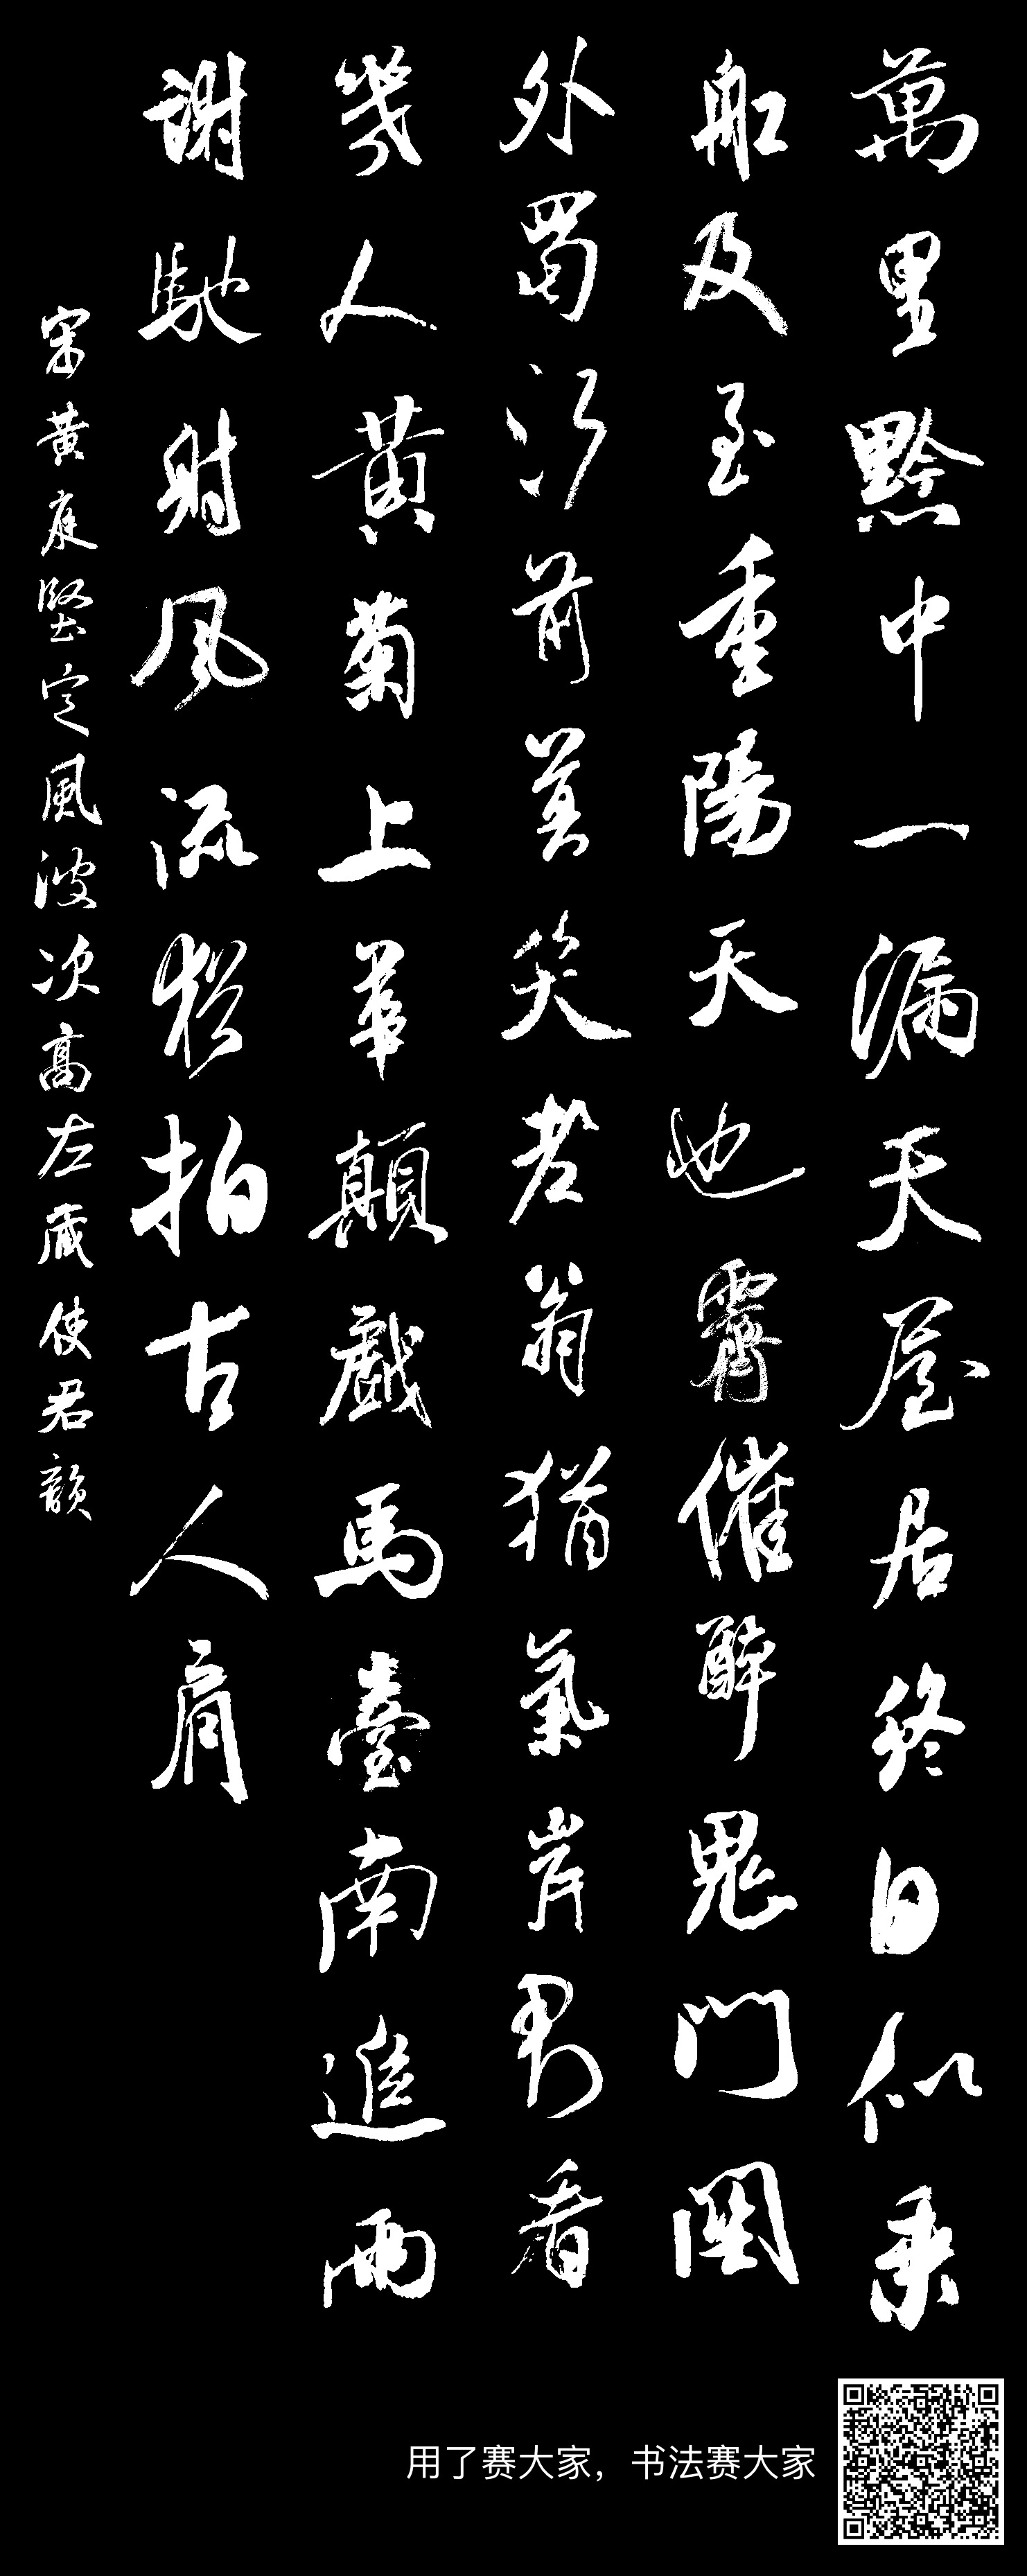 萬里黔中一漏天屋居終日似乘
船及至重陽天也霽催醉鬼門關
外蜀江前莫笑老翁猶氣岸君看
幾人黃菊上華顛戲馬臺南追兩
謝馳射風流猶拍古人肩
宋黃庭堅定風波次高左藏使君韻
用了赛大家，书法赛大家